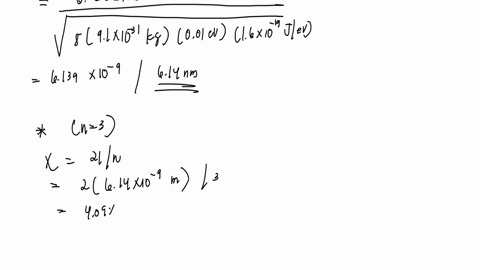 =
√ 8 (9.1×10^-31 kg) (0.01 eV) (1.6×10^-19 J/eV)
= 6.139 ×10^-9 / 6.14 nm
* (n=3)
x = 2l/n
= 2 ( 6.14×10^-9 m) / 3
= 4.09